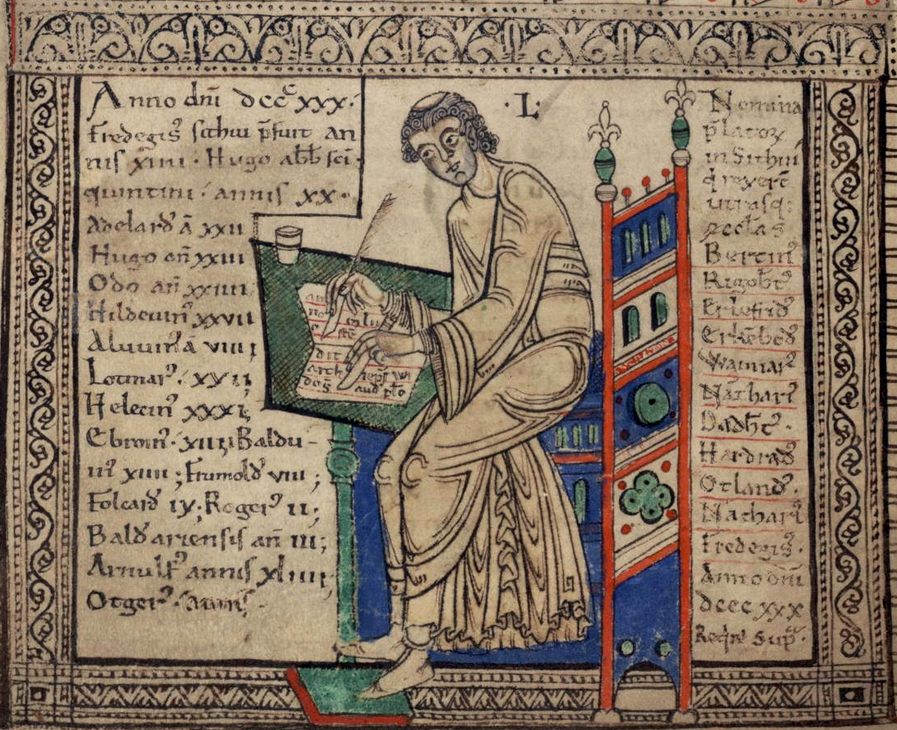 Anno dn̄i dccc̄ xxx·
Fredegis᷒ sithiu p̄fuit an
nis xiiii · Hugo abb̄ sc̄i
quintini · annis xx ·
Adelard᷒ ā xxii
Hugo an̄ xxiii
Odo an̄ xxiiii
Hilduuin᷒ xxvii
Aluuin᷒ ā viii ;
Helecin᷒ xxxi;
Ebroin᷒ · xiiii; Baldu-
in᷒ xiiii ; Frumold᷒ viii ;
Folcard᷒ ix; Roger᷒ ii;
Bald᷒ ariensis an̄ iii;
Arnulf᷒ annis xliiii;
Otger᷒ · annis
·L·
Nomina
p̄latoꝝ
in Sithiu
q̇ rexer̄t
utrasq;
ęcclas
Bertin᷒
Rigob̄t᷒
Erlefrid᷒
Erkēbod᷒
Wamar᷒
Nathari᷒
Dadb̄t᷒ ·
Hardrad᷒
Otland᷒ ·
Nathari᷒
Fredegis᷒ ·
Anno dn̄i
dccc xxx
Reqr̄e sup᷒ ·